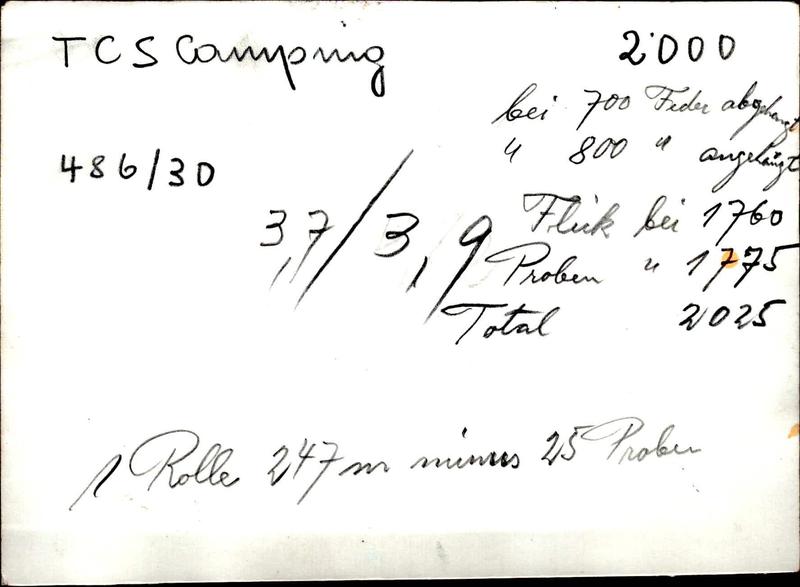 TCS Camping 2'000
bei 700 Feder abgehängt
" 800 " angehängt
486/30
3,7/3,9
Flick bei 1760
Proben " 1775
Total 2025
1 Rolle 247 m minus 25 Proben